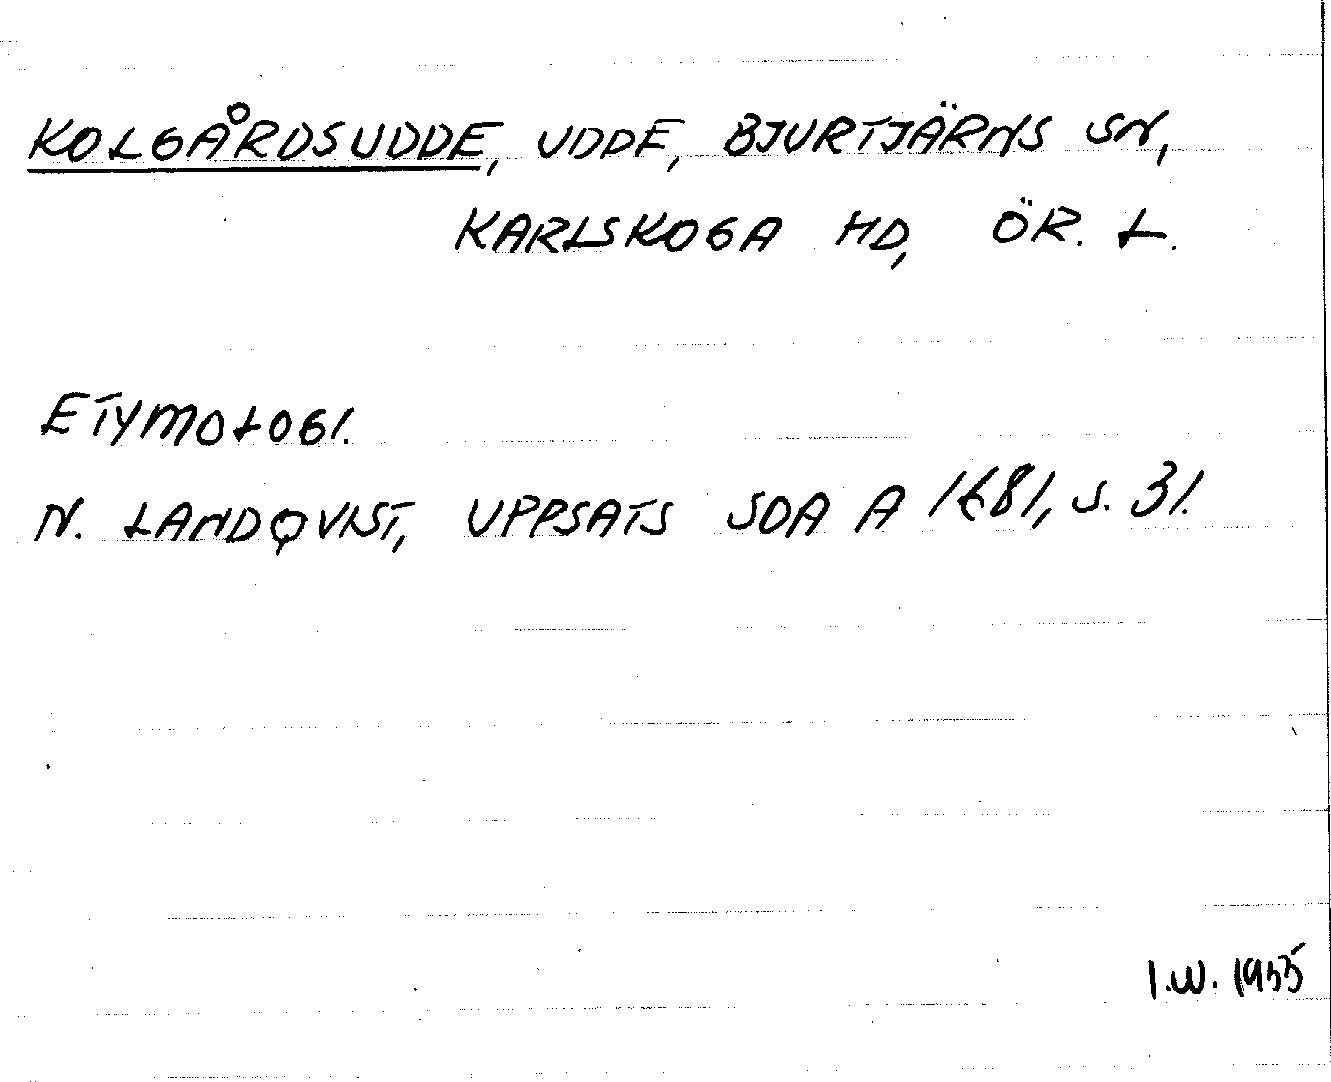 KOLGÅRDSUDDE, UDDE, BJURTJÄRNS SN,
KARLSKOGA HD, ÖR. L.
ETYMOLOGI.
N. LANDQVIST, UPPSATS SOA A 1681, S. 31.
I.W. 1955